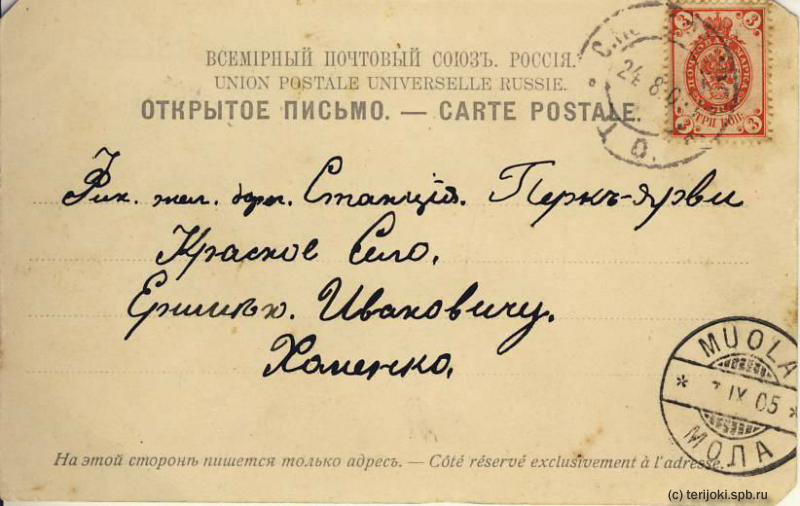 ВСЕМІРНЫЙ ПОЧТОВЫЙ СОЮЗЪ. РОССІЯ.
UNION POSTALE UNIVERSELLE RUSSIE.
ОТКРЫТОЕ ПИСЬМО. — CARTE POSTALE.
3 3
ПОЧТОВАЯ МАРКА
ТРИ КОП.
3 3
24 8 0
Фин. жел. дорог. Станція. Перкъ-ярви
Красное Село.
Ивановичу.
Хоменко.
MUOLA
IX 05
МОЛА
На этой сторонѣ пишется только адресъ. — Côté réservé exclusivement à l'adresse.
(c) terijoki.spb.ru